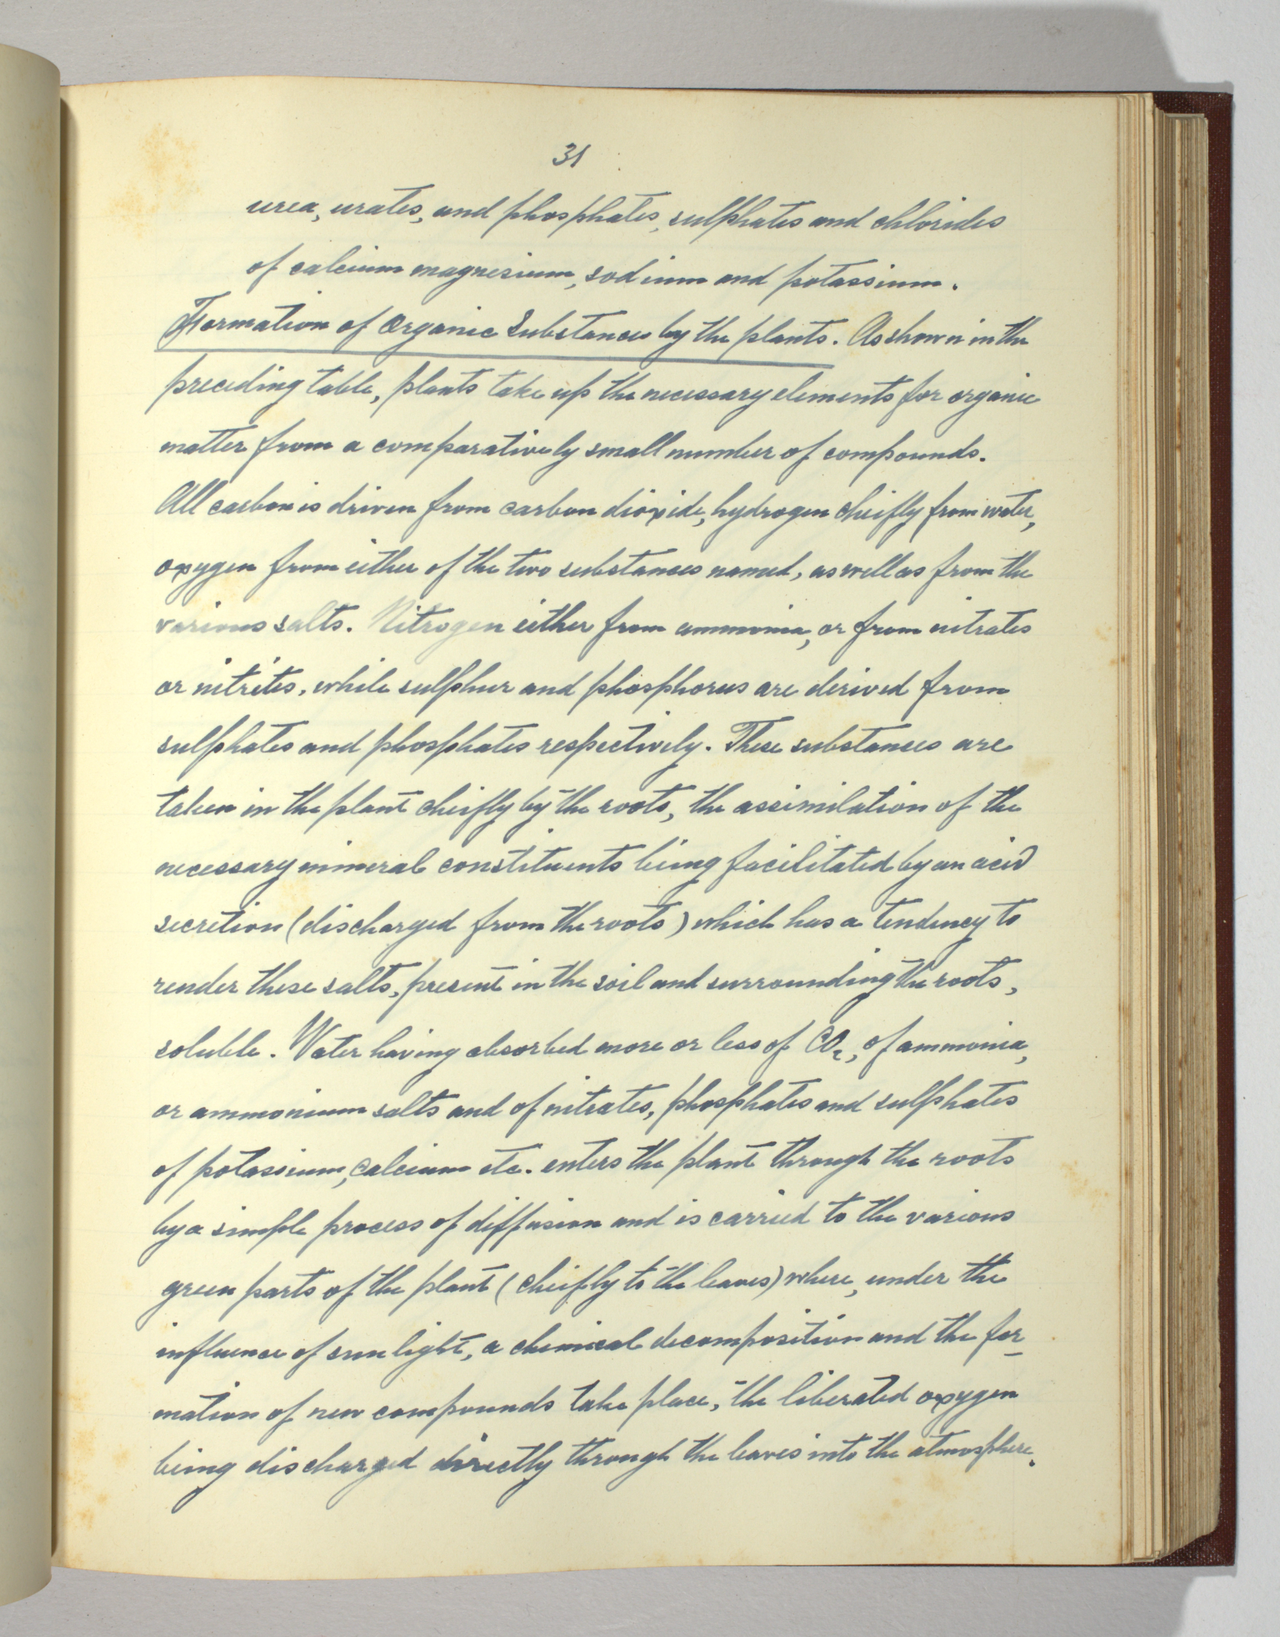 31
urea, urates, and phosphates, sulphates and chlorides
of calcium magnesium, sodium and potassium.
Formation of Organic Substances by the plants. As shown in the
preceding table, plants take up the necessary elements for organic
matter from a comparatively small number of compounds.
All carbon is driven from carbon dioxide, hydrogen cheifly from water,
oxygen from either of the two substances named, as well as from the
various salts. Nitrogen either from ammonia, or from nitrates
or nitrites, while sulphur and phosphorus are derived from
sulphates and phosphates respectively. These substances are
taken in the plant cheifly by the roots, the assimilation of the
necessary mineral constituents being facilitated by an acid
secretion (discharged from the roots) which has a tendency to
render these salts, present in the soil and surrounding the roots,
soluble. Water having absorbed more or less of CO₂, of ammonia,
or ammonium salts and of nitrates, phosphates and sulphates
of potassium, calcium etc. enters the plant through the roots
by a simple process of diffusion and is carried to the various
green parts of the plant (cheifly to the leaves) where, under the
influence of sun light, a chemical decomposition and the for-
mation of new compounds take place, the liberated oxygen
being discharged directly through the leaves into the atmosphere.